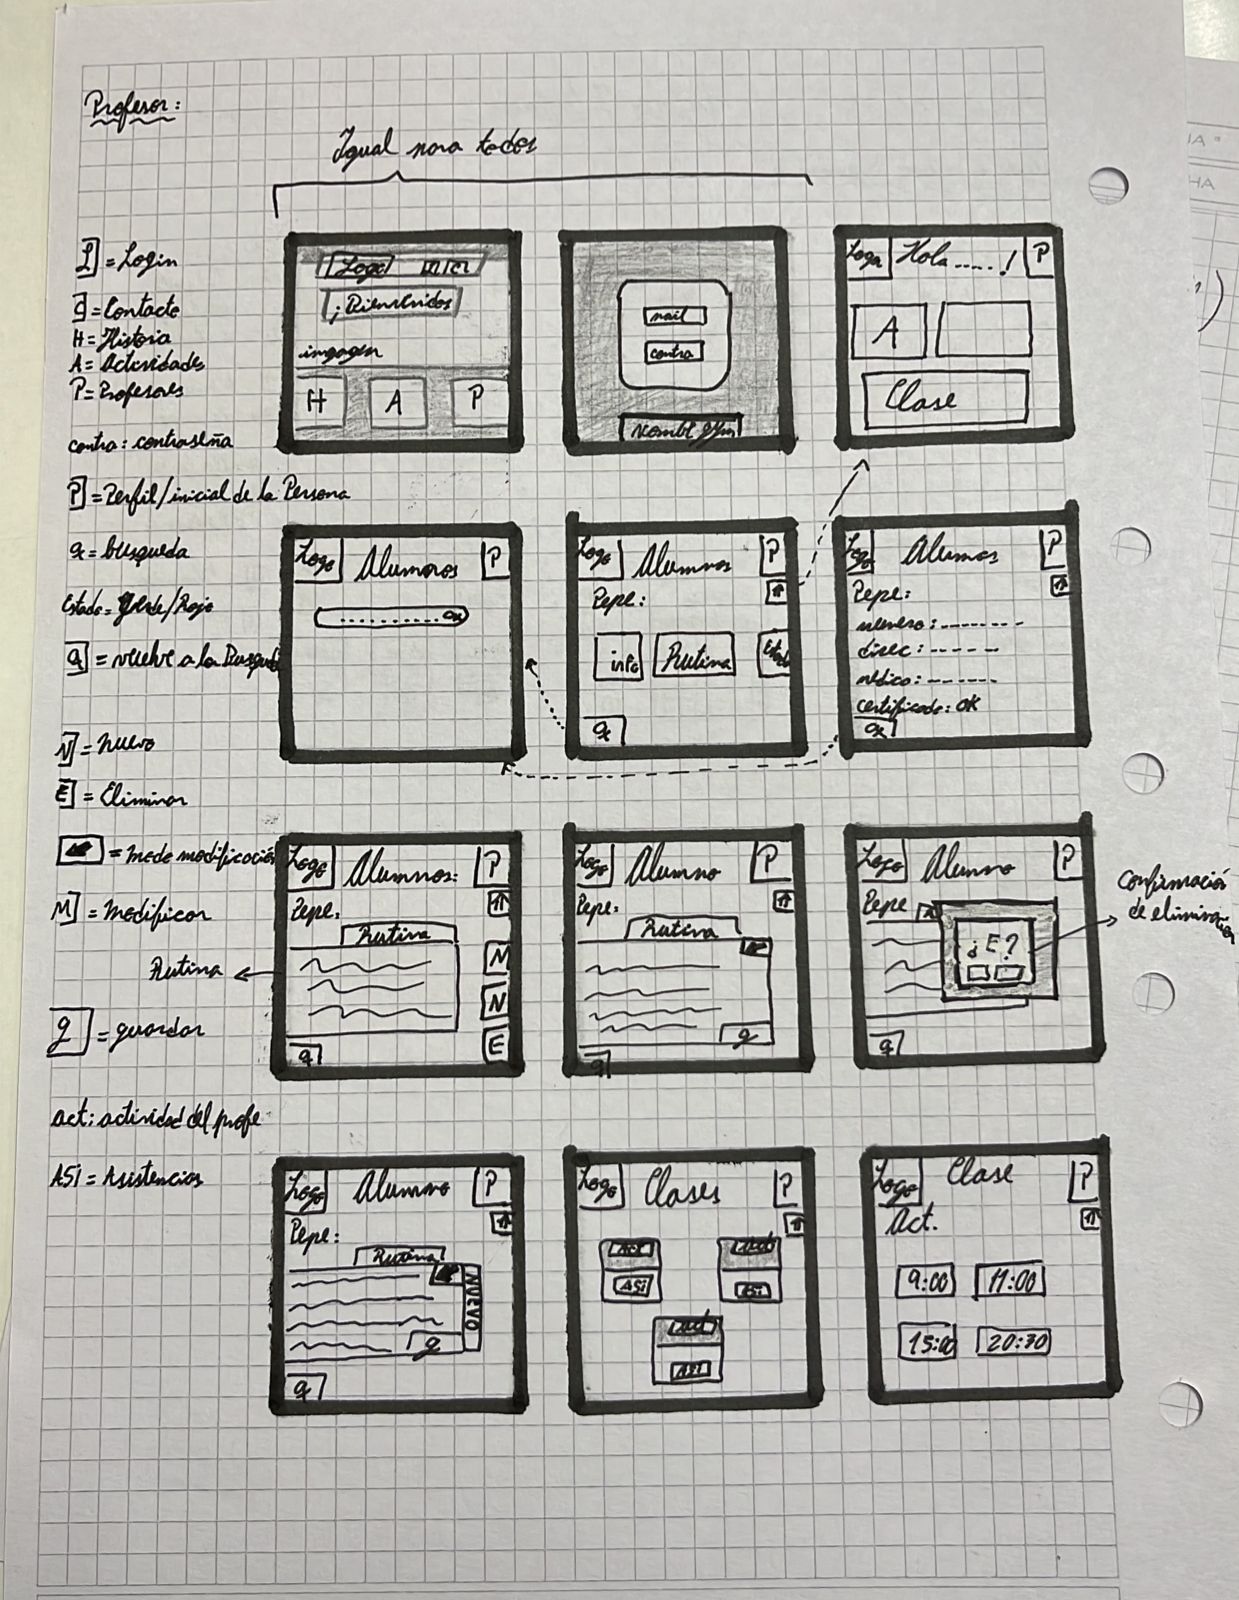 Profesor:
Igual para todos
[L] = Login
[C] = Contacto
H = Historia
A = Actividades
P = Profesores
contra: contraseña
[P] = Perfil/inicial de la Persona
q = búsqueda
Estado = Verde/Rojo
[q] = vuelve a la Busqued
[N] = nuevo
[E] = Eliminar
= modo modificación
[M] = Modificar
Rutina
[g] = guardar
act: actividad del profe
ASI = Asistencias
Logo
¡Bienvenidos
imagen
H A P
mail
contra
Nombre gym
Logo Hola ....! P
A
Clase
Logo Alumnos P
q
Logo Alumnos P
Pepe:
info Rutina Estado
q
Logo Alumos P
Pepe:
numero: --------
direc: -----
médico: ------
certificado: OK
q
Logo Alumnos: P
Pepe:
Rutina
M
N
E
q
Logo Alumno P
Pepe:
Rutina
g
q
Logo Alumno P
Pepe
¿E?
q
Confirmación
de eliminación
Logo Alumno P
Pepe:
Rutina
NUEVO
g
q
Logo Clases P
Act Act
ASI ASi
act
ASI
Logo Clase P
Act.
9:00 11:00
15:00 20:30